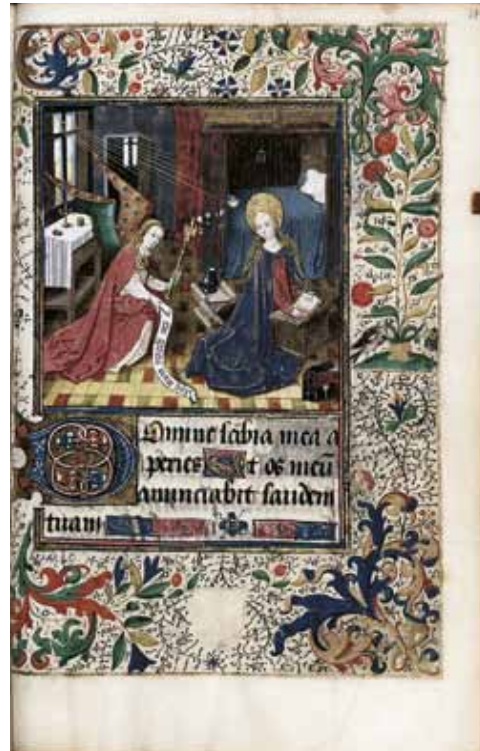 Domine labia mea a
peries Et os meū
anunciabit laudem
tuam